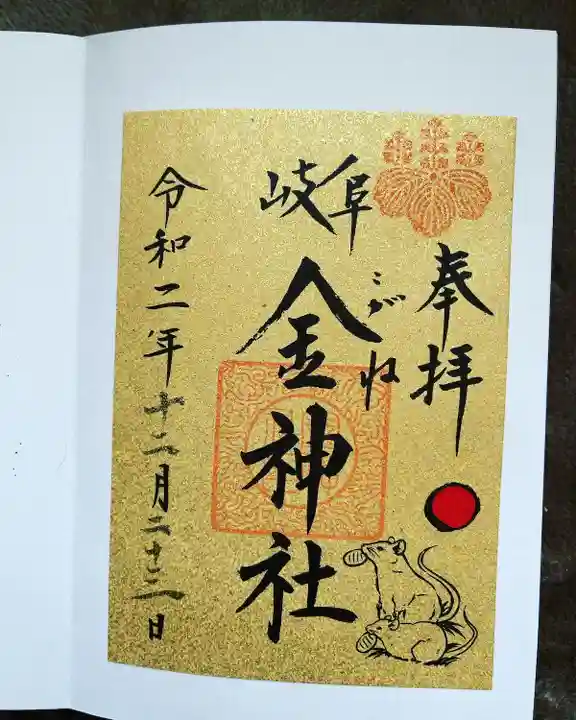 奉拝
岐阜
こがね
金神社
令和二年十二月二十三日